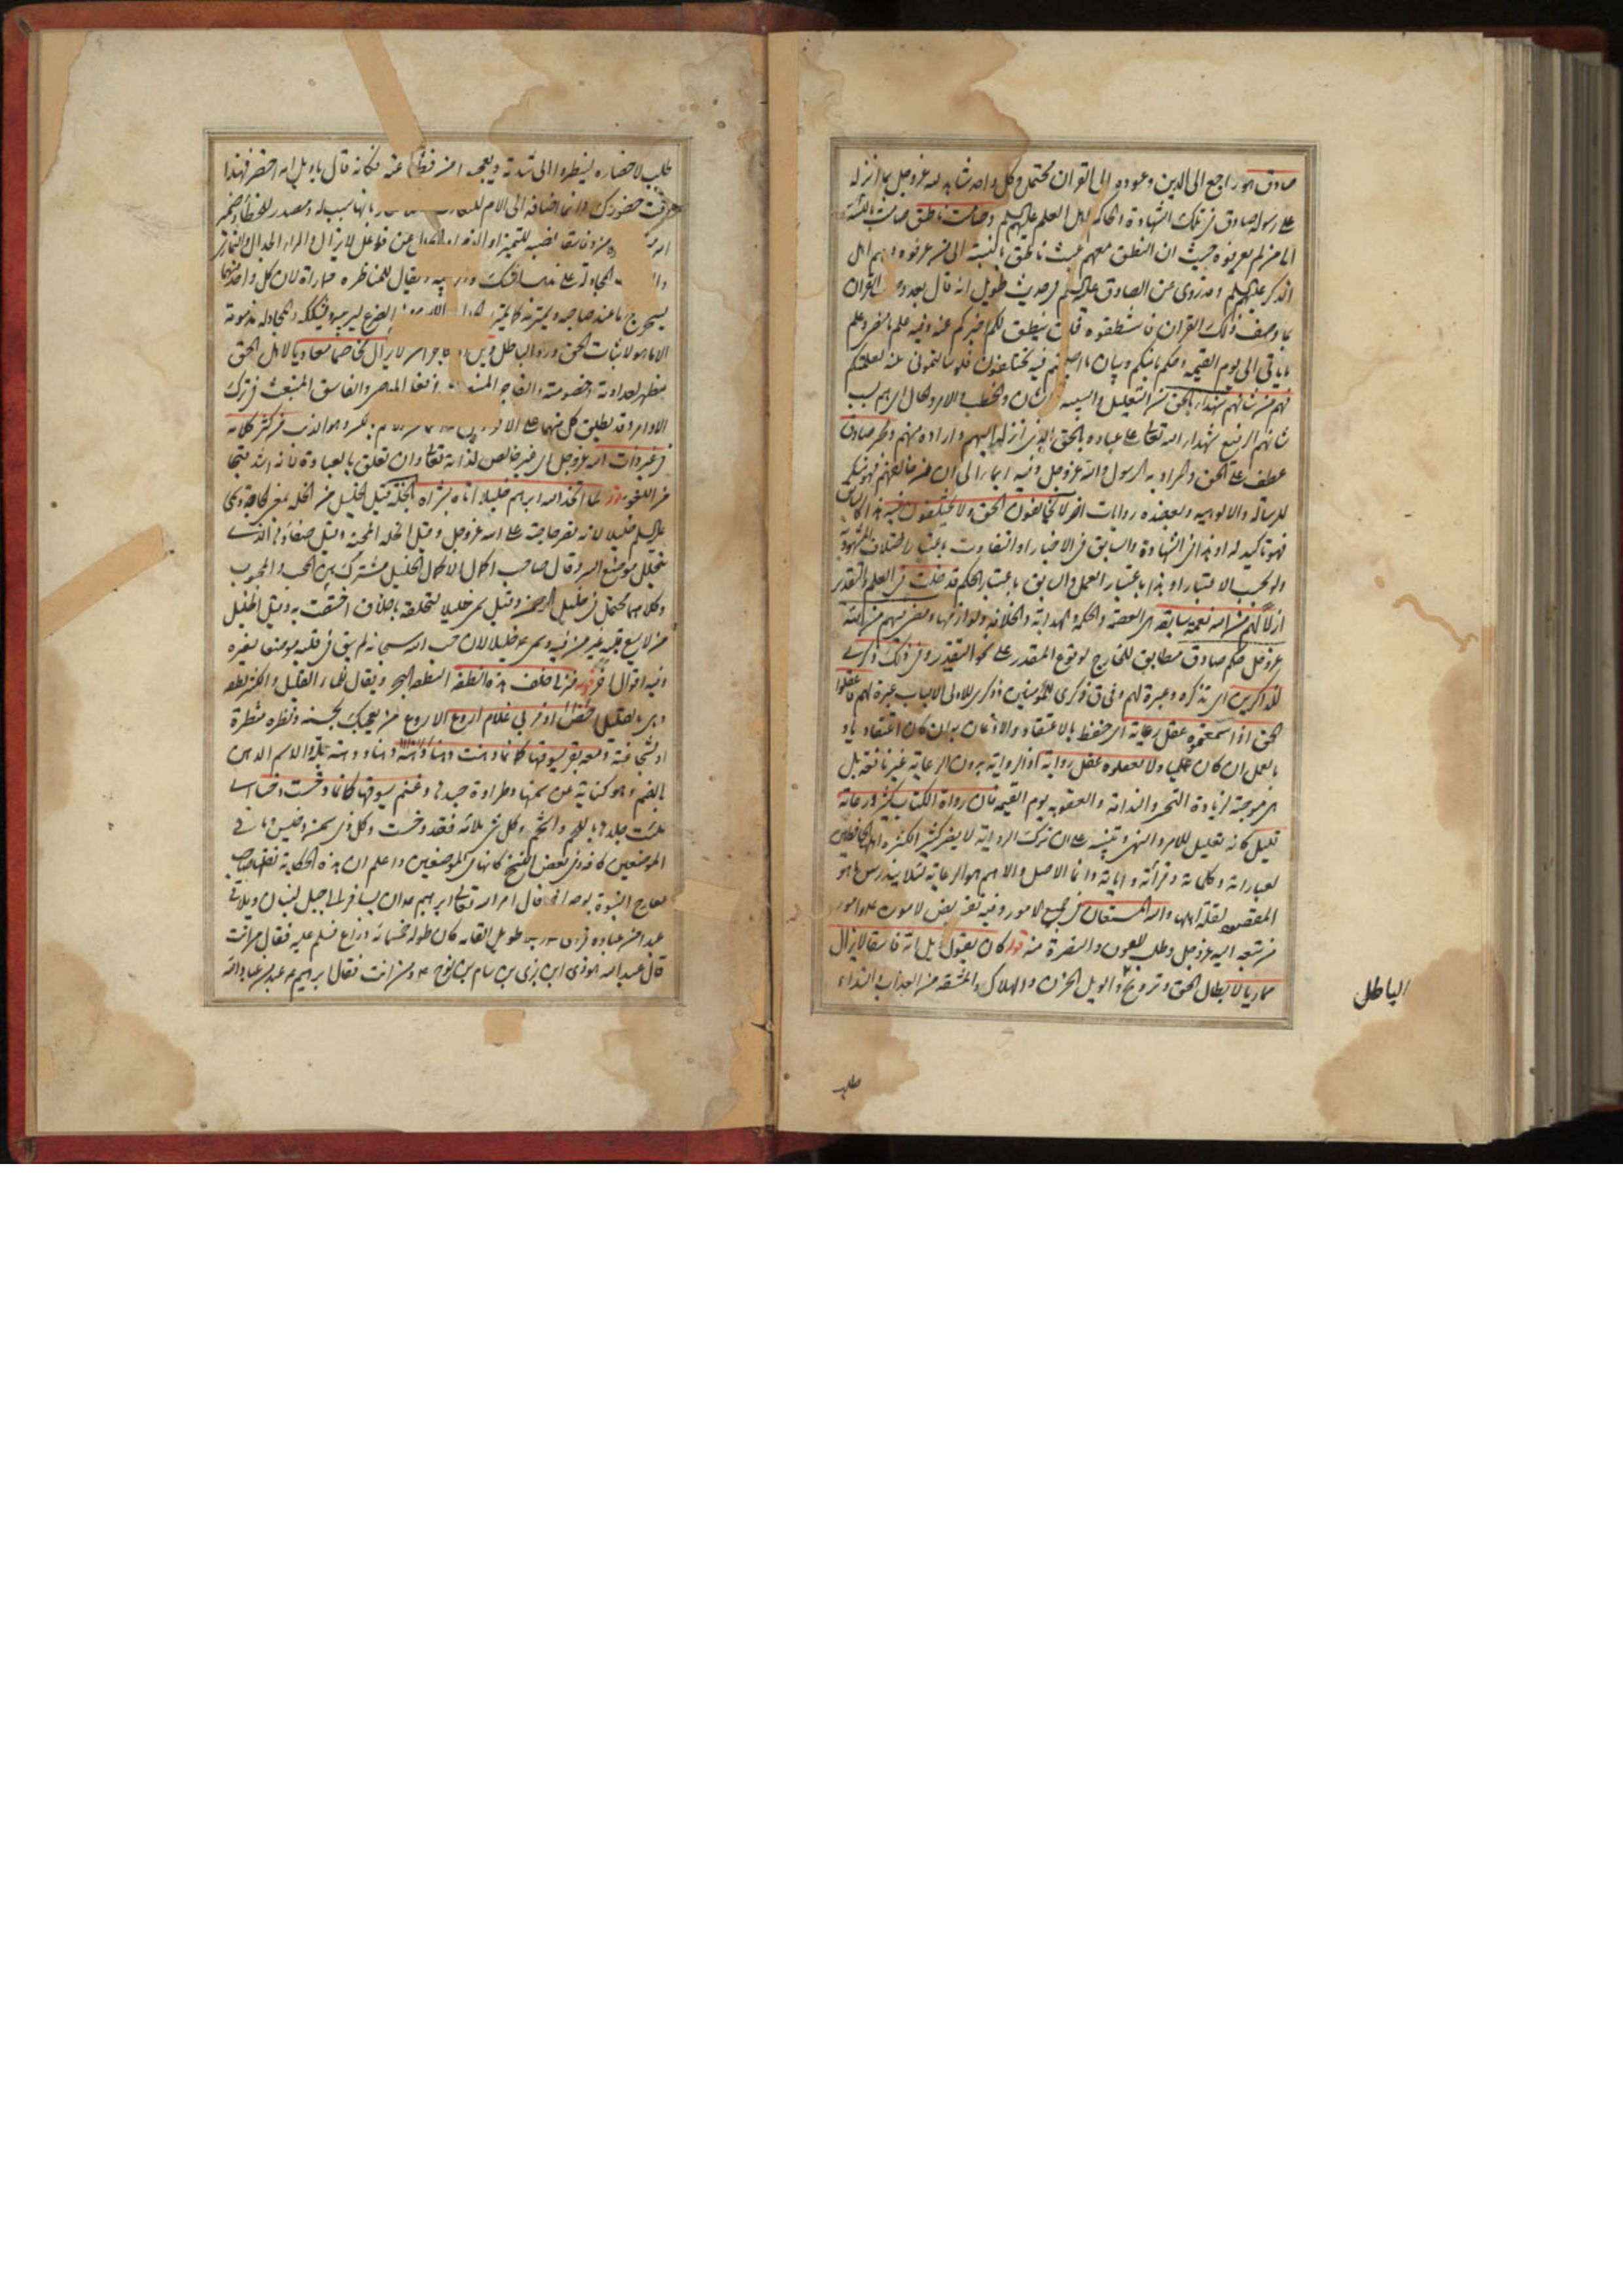 صادق هو راجع الى الدين وعوده الى القران محتمل وكل واحد شاهد لله عزوجل بما انزله
على رسوله صادق في تلك الشهادة والحاكم اهل العلم عليهم السلم وصامت ناطق صامت بالنسبة
الى من لم يعرفوه حيث ان النطق معهم عبث ناطق بالنسبة الى من عرفوه وهم اهل
الذكر عليهم السلم وقد روى عن الصادق عليه السلم في حديث طويل انه قال بعد وصف القران
بما وصف ذلك القران فاستنطقوه فلن ينطق لكم اخبركم عنه وفيه علم ما مضى وعلم
ما ياتي الى يوم القيمة وحكم ما بينكم وبيان ما اصبحتم فيه تختلفون فلو سالتموني عنه لعلمتكم
فهم من شانهم شهداء بالحق من التعليل والسببية الشان والخطب والامر والحال اى هم بسبب
شانهم الرفيع شهداء الله تعالى على عباده بالحق الذى انزله اليهم واراده منهم ومخبر صادق
عطف على الحق والمراد به الرسول والله عزوجل وفيه ايماء الى ان من خالفهم فهو منكر
للرسالة والالوهية ويعضده روايات اخر لا يخالفون الحق ولا يختلفون فيه
فهو تاكيد له او هذا في الشهادة والسابق في الاخبار او التفاوت باعتبار اختلاف المشهود به
ولو بحسب الاعتبار او هذا باعتبار العمل والسابق باعتبار الحكم قد خلت في العلم والتقدير
ازلا لهم من الله نعمة سابقة هى العصمة والحكمة والهداية والخلافة ولوازمها ومضى فيهم من الله
عزوجل حكم صادق مطابق للخارج لوقوع المقدر على نحو التقدير وفى ذلك ذكرى
للذاكرين اى تذكرة وعبرة لهم وفى ق ذكرى للمؤمنين وذكرى لاولى الالباب عبرة لهم فاعقلوا
الحق اذا سمعتموه عقل رعاية اى حفظ بالاعتقاد والاذعان به ان كان اعتقاديا و
بالعمل ان كان عمليا ولا تعقلوه عقل رواية اذ الرواية بدون الرعاية غير نافعة بل
هى موجبة لزيادة التحسر والندامة والعقوبة يوم القيمة فان رواة الكتاب كثير ورعاته
قليل كانه تعليل للامر والنهى وتنبيه على ان ترك الرواية لا يضر كثيرا لكثرة اهلها الحافظين
لعباراته وكلماته وقرائته واياته وانما الاصل والاهم هو الرعاية لئلا يندرس ما هو
المقصود لقلة اهلها والله المستعان فى جميع الامور وفيه تفويض لاموره
من شيعته اليه عزوجل وطلب للعون والنصرة منه قوله كان يقول ويل امه فاسقا لا يزال
مماريا لابطال الحق وترويج والويل الحزن والهلاك والمشقة من العذاب والنداء
الباطل
طلب
طلب لاحضاره لينظروا الى شدته ويعجبه من فظاعته فكانه قال يا ويل امه احضر فهذا
وقت حضورك وانما اضافه الى الام بانها سبب له ومصدر للخطأ وضمير
وفاسقا نصبه للتميز او الذم عن فاعل لا يزال والمراء الجدال والتمارى
المجادلة على مذهب الشك والريبة ويقال للمناظرة مماراة لان كل واحد منهما
يستخرج ما عند صاحبه ويمتريه كما يمترى الحالب اللبن من الضرع ليريبه ويشككه والمجادلة مذمومة
الا ما هو لاثبات الحق ورد الباطل لا يزال مخاصما معاديا لاهل الحق
مظهر لعداوته وخصومته والفاجر المنبعث فى المعاصى والفاسق المنبعث فى ترك
الاوامر وقد يطلق كل منهما على الاخر من كثر كلامه
فى غير ذات الله عزوجل اى غير خالص لذاته تعالى وان تعلق بالعبادة فانه اشد قبحا
من اللغو قوله لما اتخذ الله ابراهيم خليلا اتاه بشراه الخلة قيل الخليل من الخلة بمعنى الحاجة وسمى
عليه السلم خليلا لانه قصر حاجته على الله عزوجل وقيل الخلة المحبة وقيل صفاؤها الذى
يتخلل مواضع السر وقال صاحب اكمال الاكمال الخليل مشترك بين المحب والمحبوب
وكلاهما محتمل فى خليل الرحمن وقيل سمى خليلا لتخلقه باخلاق اختصت به وقيل الخليل
من لا يسع قلبه غير من فيه وسمى خليلا لان حب الله سبحانه لم يبق فى قلبه موضعا لغيره
وفيه اقوال اخر قوله من خلف هذه النطفة النطفة البحر ويقال للماء القليل والكثير نطفة
وهى بالقليل اخص او فربى غلام اروع الاروع من يعجبك بحسنه ونظره منظره
او شجاعته ومعه بقر يسوقها كانما دهنت دهنا والاسم الدهن
بالضم وهو كناية عن سمنها وطراوة جيدها وغنم يسوقها كانما دخست دخسا اى
ملئت جلدها باللحم والشحم وكل شئ ملأته فقد دخست وكل ذى سمن دخيس وما فى
الموضعين كافة وفى بعض النسخ كانها فى الموضعين واعلم ان هذه الحكاية نقلها صاحب
معارج النبوة بوجه اخر قال امر الله تعالى ابراهيم ان يسافر الى جبل لبنان ويلاقى
عبدا من عباده فراى طويل القامة كان طوله خمسمائة ذراع فسلم عليه فقال من انت
قال عبد الله هوذى ابن يزى بن سام بن نوح ومن انت فقال ابراهيم عبد من عباد الله